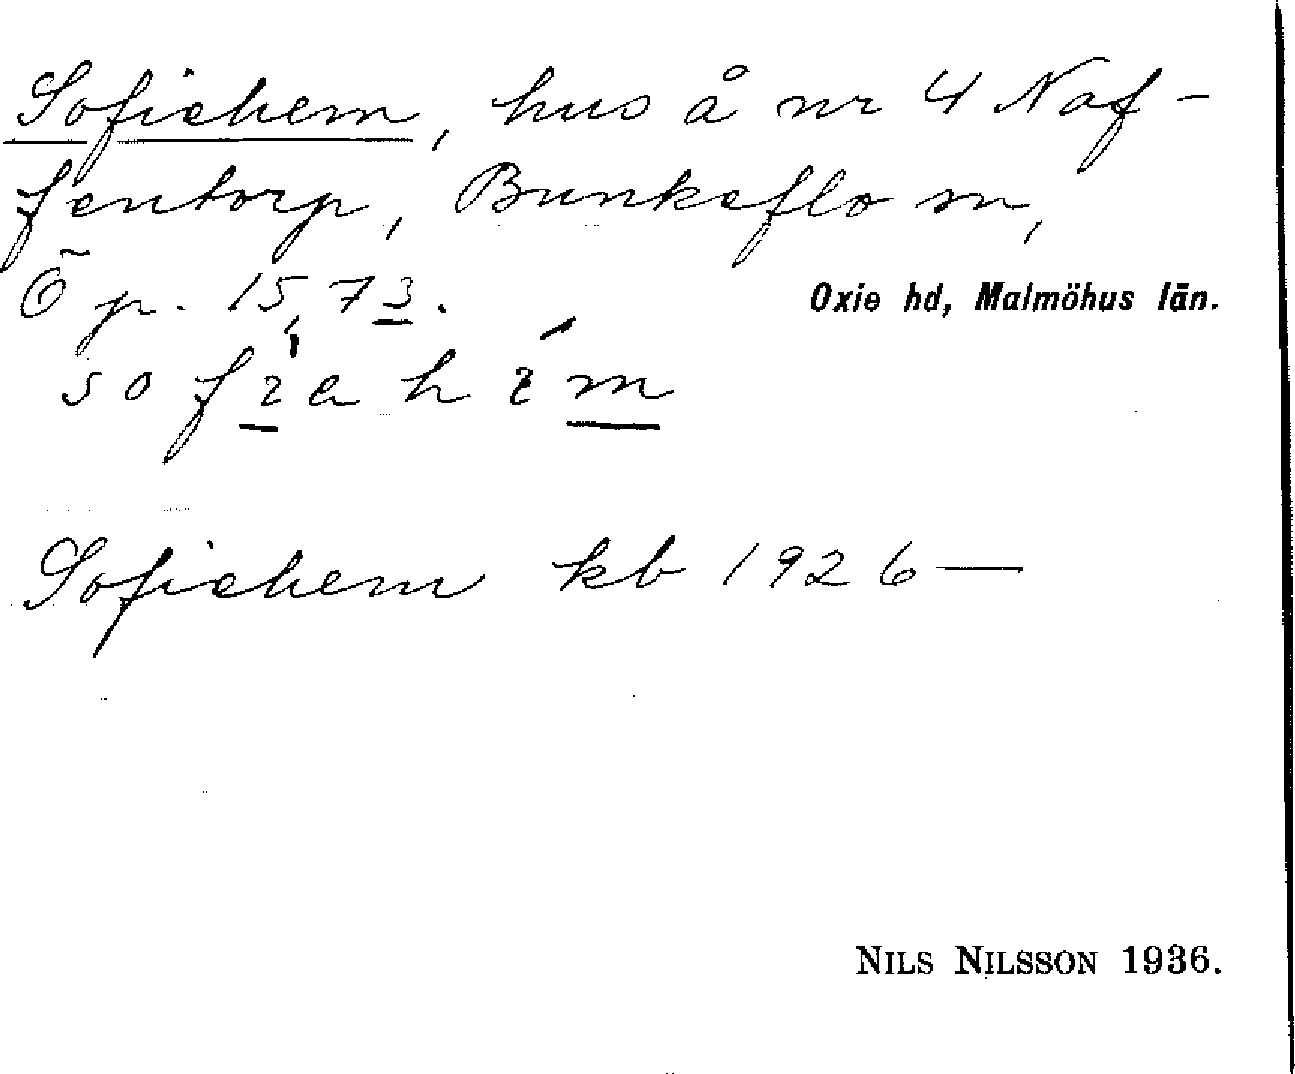 Sofiehem, hus å nr 4 Naf-
fentorp, Bunkeflo sn,
Öp. 15,73.
Oxie hd, Malmöhus län.
Sofiehem kb 1926—
NILS NILSSON 1936.